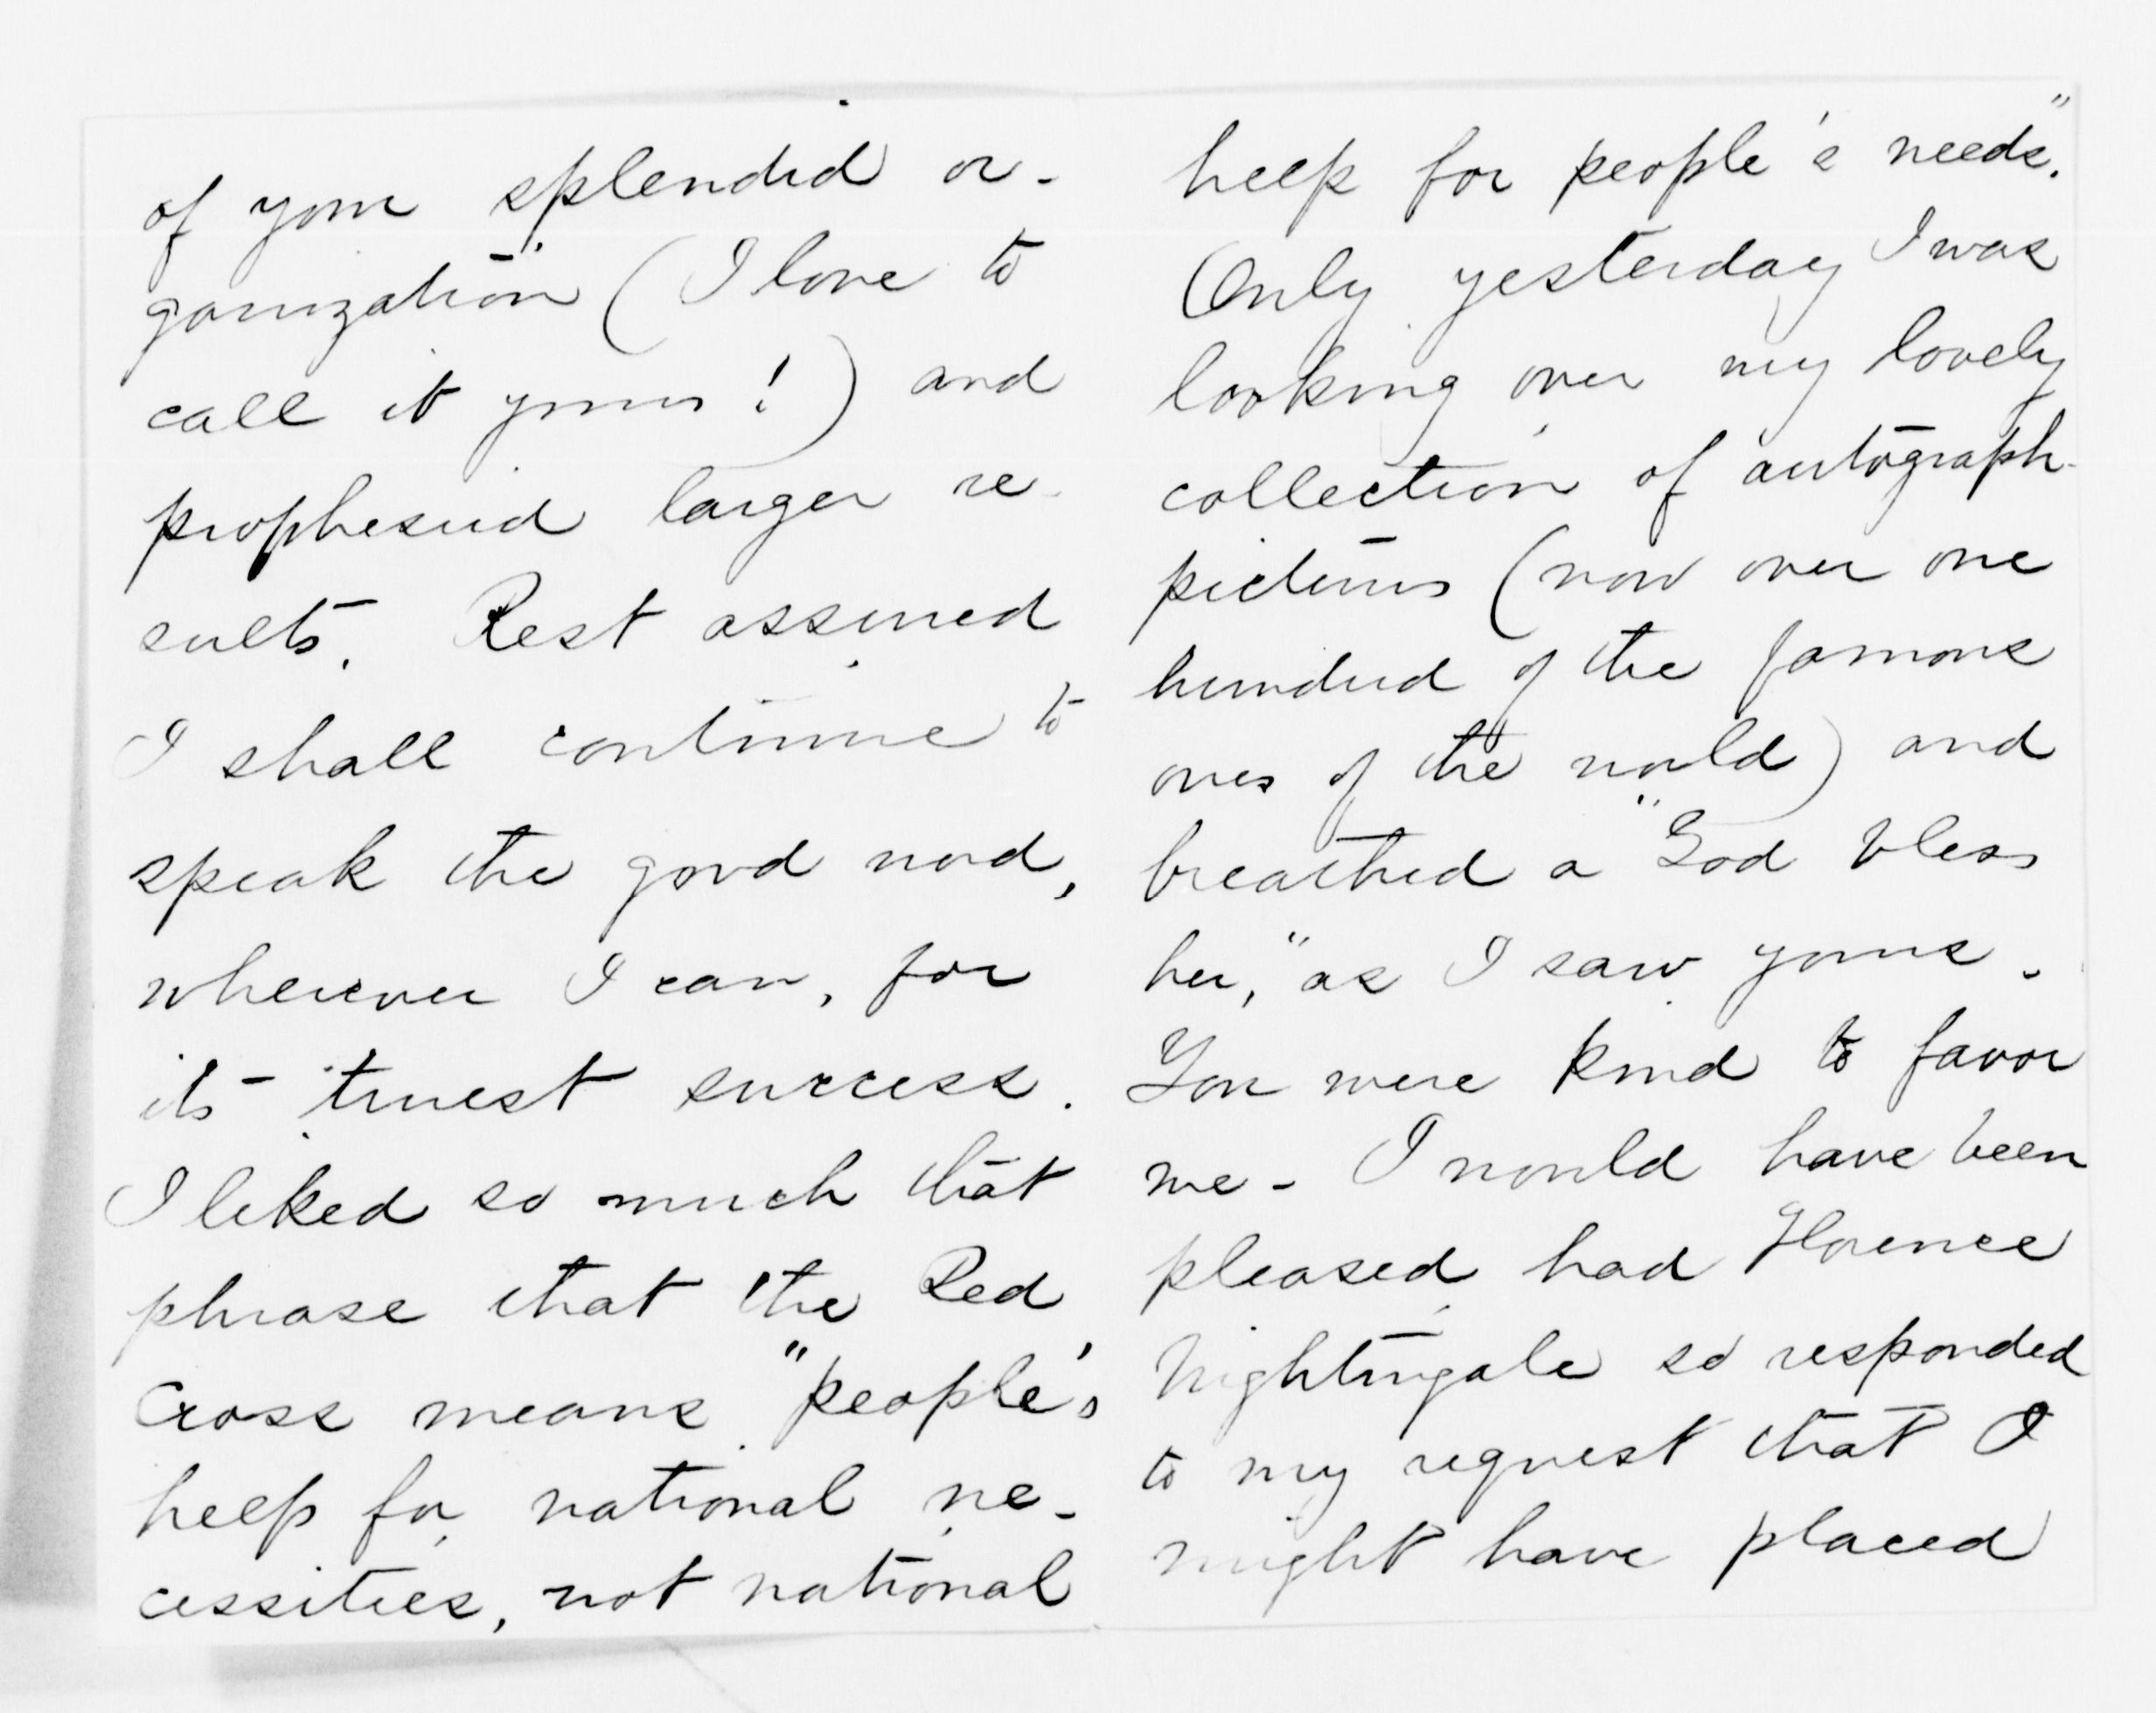 of your splendid or-
ganization (I love to
call it yours!) and
prophesied larger re-
sults. Rest assured
I shall continue to
speak the good word,
wherever I can, for
its truest success.
I liked so much that
phrase that the Red
Cross means "people's
help for national ne-
cessities, not national
help for people's needs."
Only yesterday I was
looking over my lovely
collection of autograph-
pictures (now over one
hundred of the famous
ones of the world) and
breathed a "God bless
her," as I saw yours.
You were kind to favor
me - I would have been
pleased had Florence
Nightingale so responded
to my request that I
might have placed